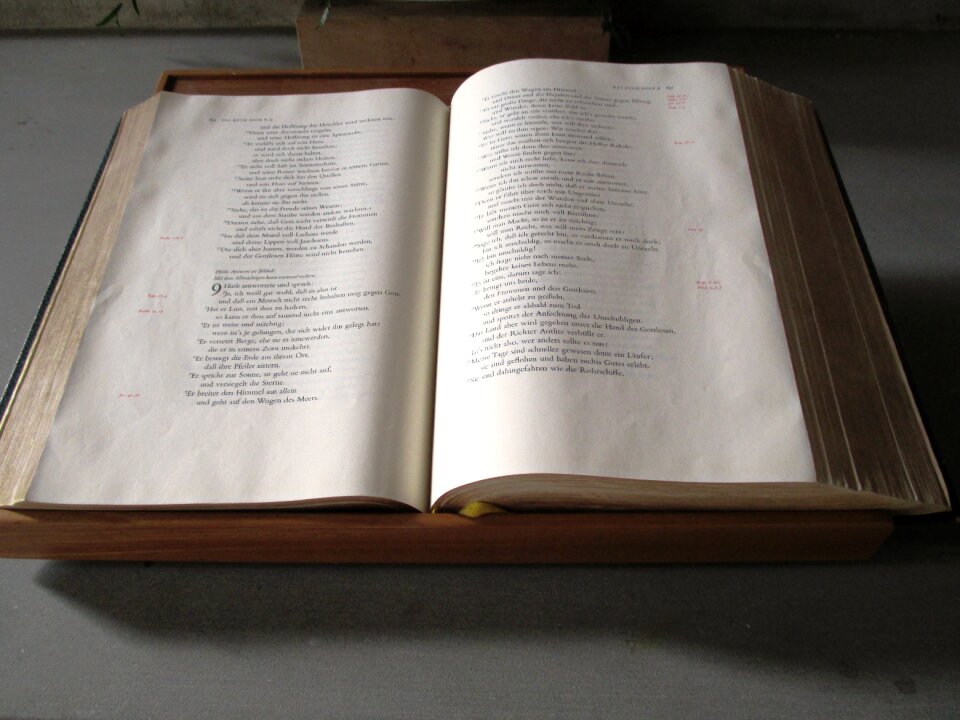 DAS BUCH HIOB 8.9
und die Hoffnung des Heuchlers wird verloren sein,
und seine Hoffnung ist eine Spinnwebe.
Er verläßt sich auf sein Haus
und wird doch nicht bestehen;
er wird sich daran halten,
aber doch nicht stehen bleiben.
Er steht voll Saft im Sonnenschein,
und seine Reiser wachsen hervor in seinem Garten.
Seine Saat steht dick bei den Quellen
und sein Haus auf Steinen.
Wenn er ihn aber verschlingt von seiner Stätte,
wird sie sich gegen ihn stellen,
als kennte sie ihn nicht.
Siehe, das ist die Freude seines Wesens;
und aus dem Staube werden andere wachsen.
Darum siehe, daß Gott nicht verwirft die Frommen
und erhält nicht die Hand der Boshaften,
bis daß dein Mund voll Lachens werde
und deine Lippen voll Jauchzens.
Die dich aber hassen, werden zu Schanden werden,
und der Gottlosen Hütte wird nicht bestehen.
Hiobs Antwort an Bildad:
Mit dem Allmächtigen kann niemand rechten.
9 Hiob antwortete und sprach:
Ja, ich weiß gar wohl, daß es also ist
und daß ein Mensch nicht recht behalten mag gegen Gott.
Hat er Lust, mit ihm zu hadern,
so kann er ihm auf tausend nicht eins antworten.
Er ist weise und mächtig;
wem ist's je gelungen, der sich wider ihn gelegt hat?
Er versetzt Berge, ehe sie es innewerden,
die er in seinem Zorn umkehrt.
Er bewegt die Erde aus ihrem Ort,
daß ihre Pfeiler zittern.
Er spricht zur Sonne, so geht sie nicht auf,
und versiegelt die Sterne.
Er breitet den Himmel aus allein
und geht auf den Wogen des Meers.
DAS BUCH HIOB 9
Er macht den Wagen am Himmel
und Orion und die Plejaden und die Sterne gegen Mittag.
Er tut große Dinge, die nicht zu erforschen sind,
und Wunder, deren keine Zahl ist.
Siehe, er geht an mir vorüber, ehe ich's gewahr werde,
und wandelt vorbei, ehe ich's merke.
Siehe, wenn er hinreißt, wer will ihm wehren?
Wer will zu ihm sagen: Was machst du?
Er ist Gott; seinen Zorn kann niemand stillen;
unter ihn mußten sich beugen die Helfer Rahabs.
Wie sollte ich denn ihm antworten
und Worte finden gegen ihn?
Wenn ich auch recht habe, kann ich ihm dennoch
nicht antworten,
sondern ich müßte um mein Recht flehen.
Wenn ich ihn schon anrufe und er mir antwortet,
so glaube ich doch nicht, daß er meine Stimme höre.
Denn er fährt über mich mit Ungestüm
und macht mir der Wunden viel ohne Ursache.
Er läßt meinen Geist sich nicht erquicken,
sondern macht mich voll Betrübnis.
Will man Macht, so ist er zu mächtig;
will man Recht, wer will mein Zeuge sein?
Sage ich, daß ich gerecht bin, so verdammt er mich doch;
bin ich unschuldig, so macht er mich doch zu Unrecht.
Ich bin unschuldig!
ich frage nicht nach meiner Seele,
begehre keines Lebens mehr.
Es ist eins, darum sage ich:
Er bringt um beide,
den Frommen und den Gottlosen.
Wenn er anhebt zu geißeln,
so dringt er alsbald zum Tod
und spottet der Anfechtung der Unschuldigen.
Das Land aber wird gegeben unter die Hand des Gottlosen,
und der Richter Antlitz verhüllt er.
Ist's nicht also, wer anders sollte es tun?
Meine Tage sind schneller gewesen denn ein Läufer;
sie sind geflohen und haben nichts Gutes erlebt.
Sie sind dahingefahren wie die Rohrschiffe,